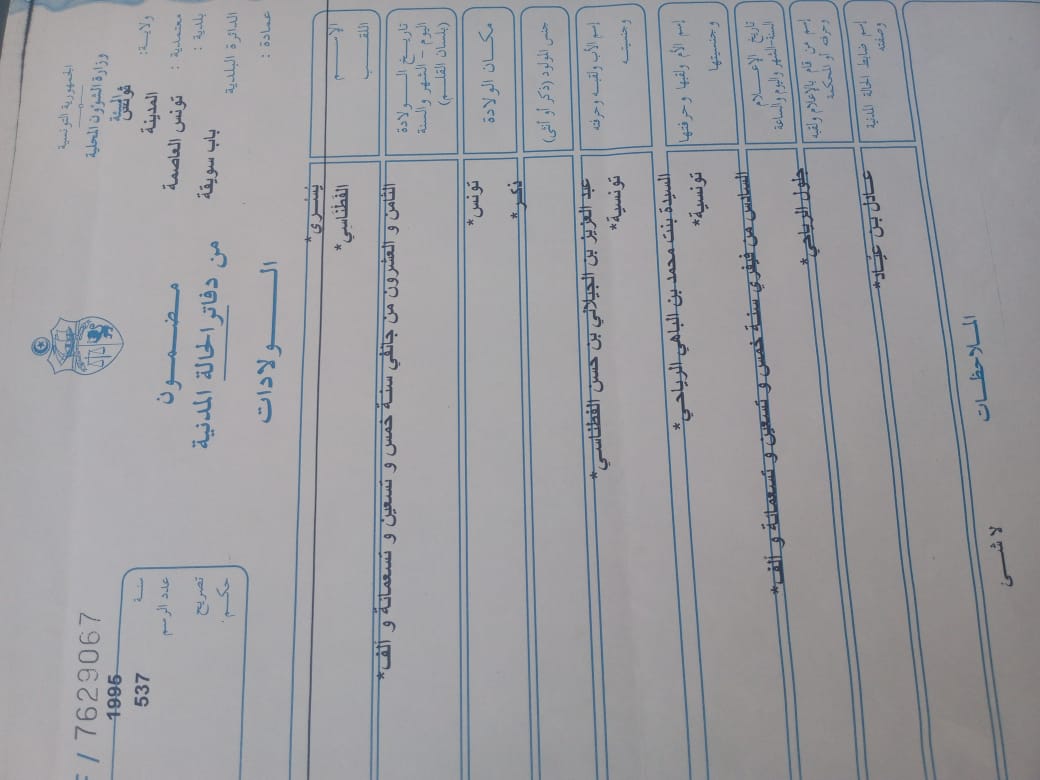 الجمهورية التونسية
وزارة الشؤون المحلية
ولاية: تونس
معتمدية: المدينة
بلدية: تونس العاصمة
الدائرة البلدية باب سويقة
عمادة:
/ 7629067
سنة 1995
عدد الرسم 537
تصريح
حكم
مضمون
من دفاتر الحالة المدنية
الولادات
الاسم يسري*
اللقب الغطاسي*
تاريخ الولادة الثامن و العشرون من جانفي سنة خمس و تسعين و تسعمائة و ألف*
(اليوم - الشهر والسنة
بلسان القلم)
مكان الولادة تونس*
جنس المولود (ذكر أو أنثى) ذكر*
إسم الأب ولقبه وحرفته عبد العزيز بن الجيلاني بن حسن الغطاسي*
وجنسيته تونسية*
إسم الأم ولقبها وحرفتها السيدة بنت محمد بن الباهي الرياحي*
وجنسيتها تونسية*
تاريخ الإعلام السادس من فيفري سنة خمس و تسعين و تسعمائة و ألف*
السنة-الشهر واليوم والساعة
إسم من قام بالإعلام ولقبه جلول الرياحي*
وحرفته أو المحكمة
إسم ضابط الحالة المدنية عادل بن عياد*
وصفته
الملاحظات
لا شئ